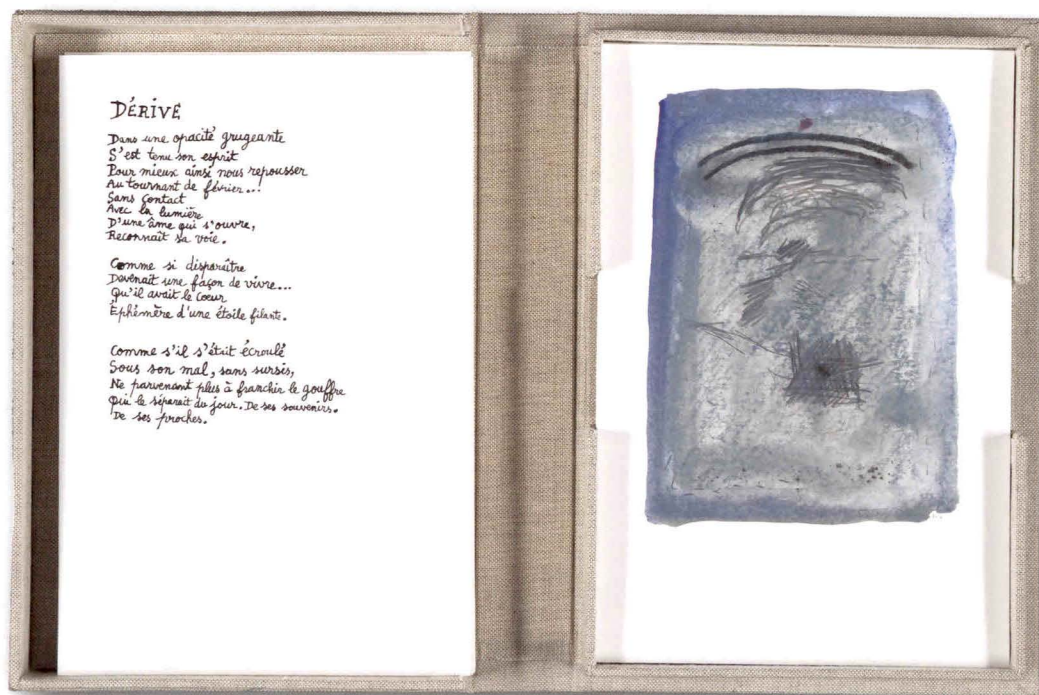 DÉRIVE
Dans une opacité grugeante
S'est tenu son esprit
Pour mieux ainsi nous repousser
Au tournant de février...
Sans contact
Avec la lumière
D'une âme qui s'ouvre,
Reconnaît sa voie.
Comme si disparaître
Devenait une façon de vivre...
Qu'il avait le coeur
Éphémère d'une étoile filante.
Comme s'il s'était écroulé
Sous son mal, sans sursis,
Ne parvenant plus à franchir le gouffre
Qui le séparait du jour. De ses souvenirs.
De ses proches.